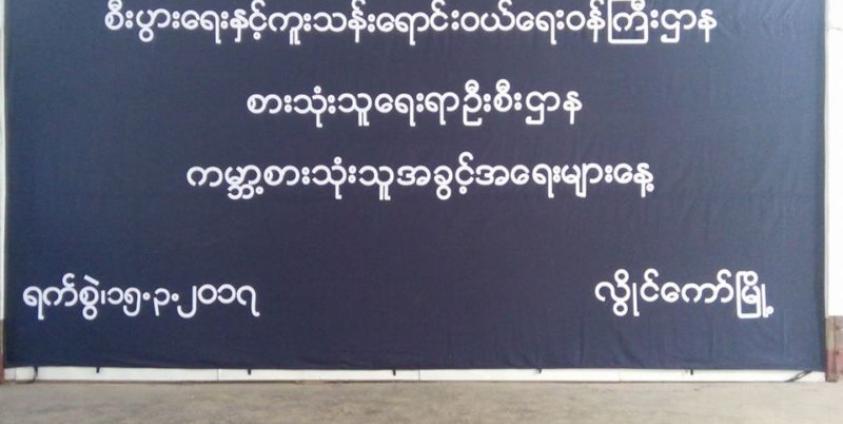 စီးပွားရေးနှင့်ကူးသန်းရောင်းဝယ်ရေးဝန်ကြီးဌာန
စားသုံးသူရေးရာဦးစီးဌာန
ကမ္ဘာ့စားသုံးသူအခွင့်အရေးများနေ့
ရက်စွဲ၊၁၅.၃.၂၀၁၇ လွိုင်ကော်မြို့